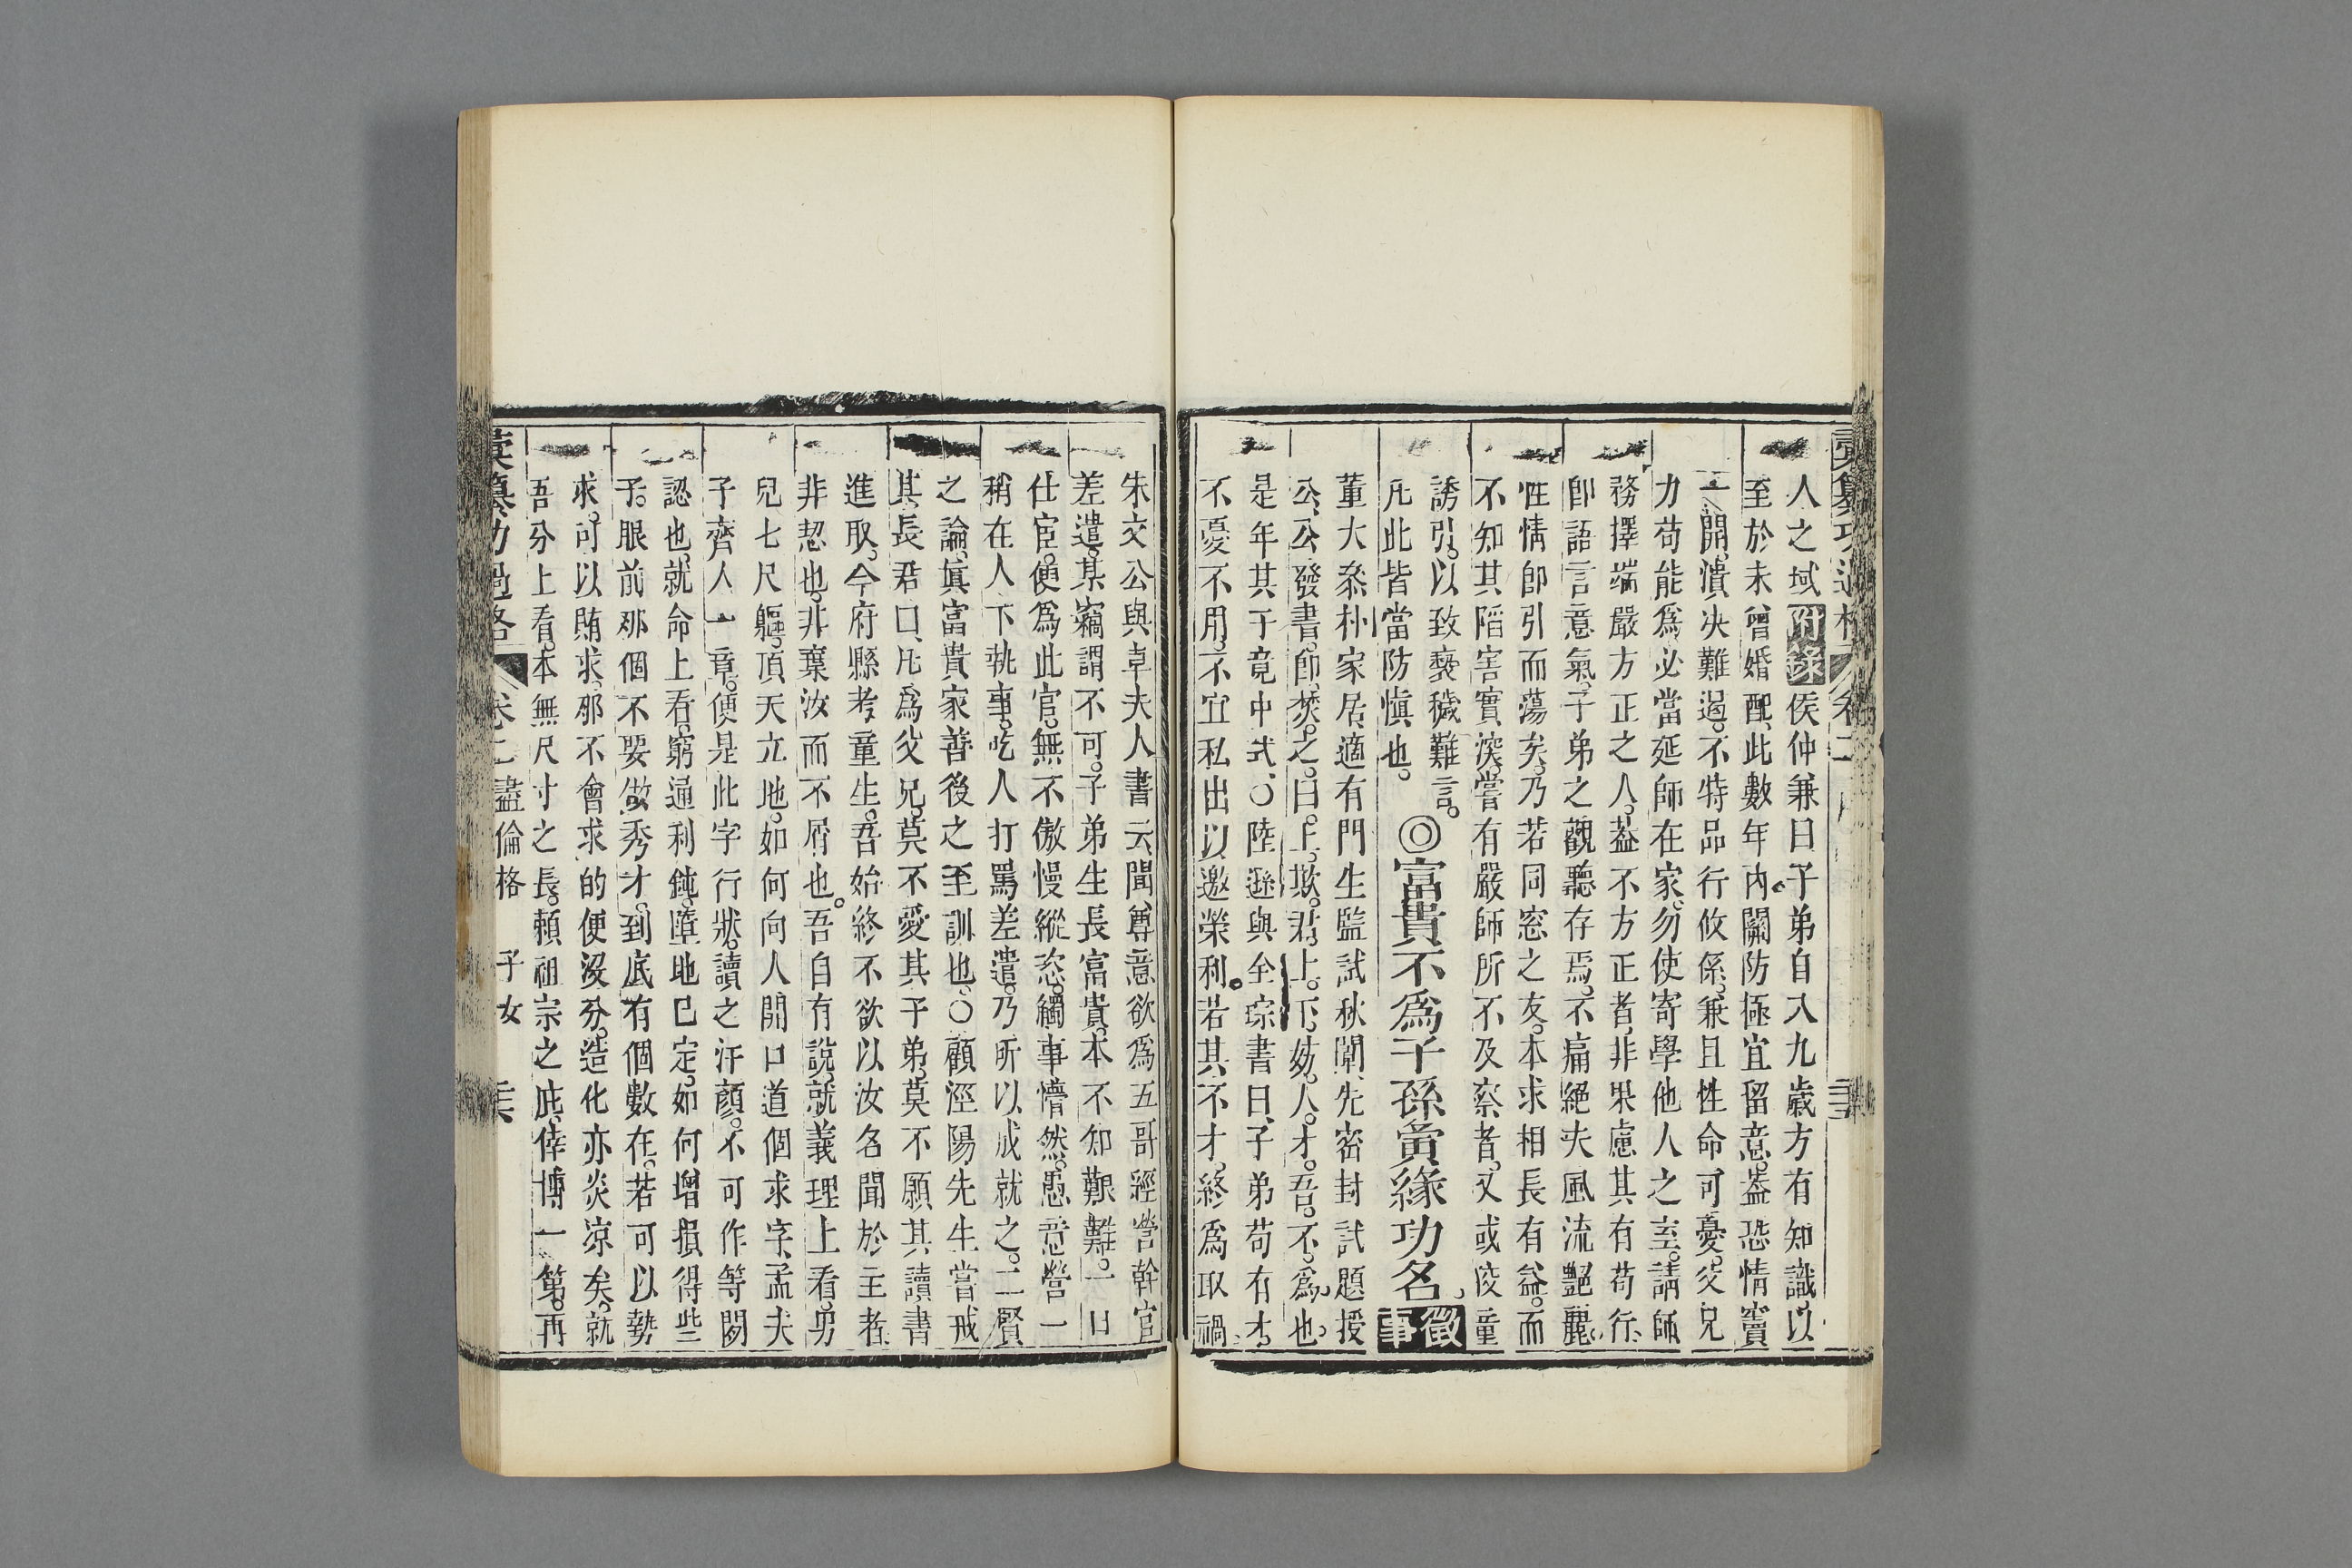 彙纂功過格 卷二
人之域附錄侯仲兼曰子弟自八九歲方有知識以
至於未曾婚配此數年內關防極宜留意葢恐情竇
一開潰决難遏不特品行攸係兼且性命可憂父兄
力苟能爲必當延師在家勿使寄學他人之室請師
務擇端嚴方正之人葢不方正者非果慮其有苟行
卽語言意氣子弟之觀聽存焉不痛絕夫風流艷麗
性情卽引而蕩矣乃若同窓之友本求相長有益而
不知其陷害實深嘗有嚴師所不及察者又或俊童
誘引以致褻穢難言
凡此皆當防愼也
◎富貴不爲子孫夤緣功名 徵事
董大叅朴家居適有門生監試秋闈先密封試題授
公公發書卽焚之曰上欺君上下妨人才吾不爲也
是年其子竟中式〇陸遜與全琮書曰子弟苟有才
不憂不用不宜私出以邀榮利若其不才終爲取禍
朱文公與卓夫人書云聞尊意欲爲五哥經營幹官
差遣某竊謂不可子弟生長富貴本不知艱難一日
仕宦便爲此官無不傲慢縱恣觸事懵然愚意營一
稍在人下執事吃人打罵差遣乃所以成就之二賢
之論眞富貴家善後之至訓也〇顧涇陽先生嘗戒
其長君曰凡爲父兄莫不愛其子弟莫不願其讀書
進取今府縣考童生吾始終不欲以汝名聞於主者
非恝也非棄汝而不屑也吾自有說就義理上看男
兒七尺軀頂天立地如何向人開口道個求字孟夫
子齊人一章便是此字行狀讀之汗顏不可作等閒
認也就命上看窮通利鈍墮地已定如何增損得些
子眼前那個不要做秀才到底有個數在若可以勢
求可以賄求那不會求的便沒分造化亦炎凉矣就
吾分上看本無尺寸之長賴祖宗之庇倖博一第再
彙纂功過格 卷二盡倫格 子女